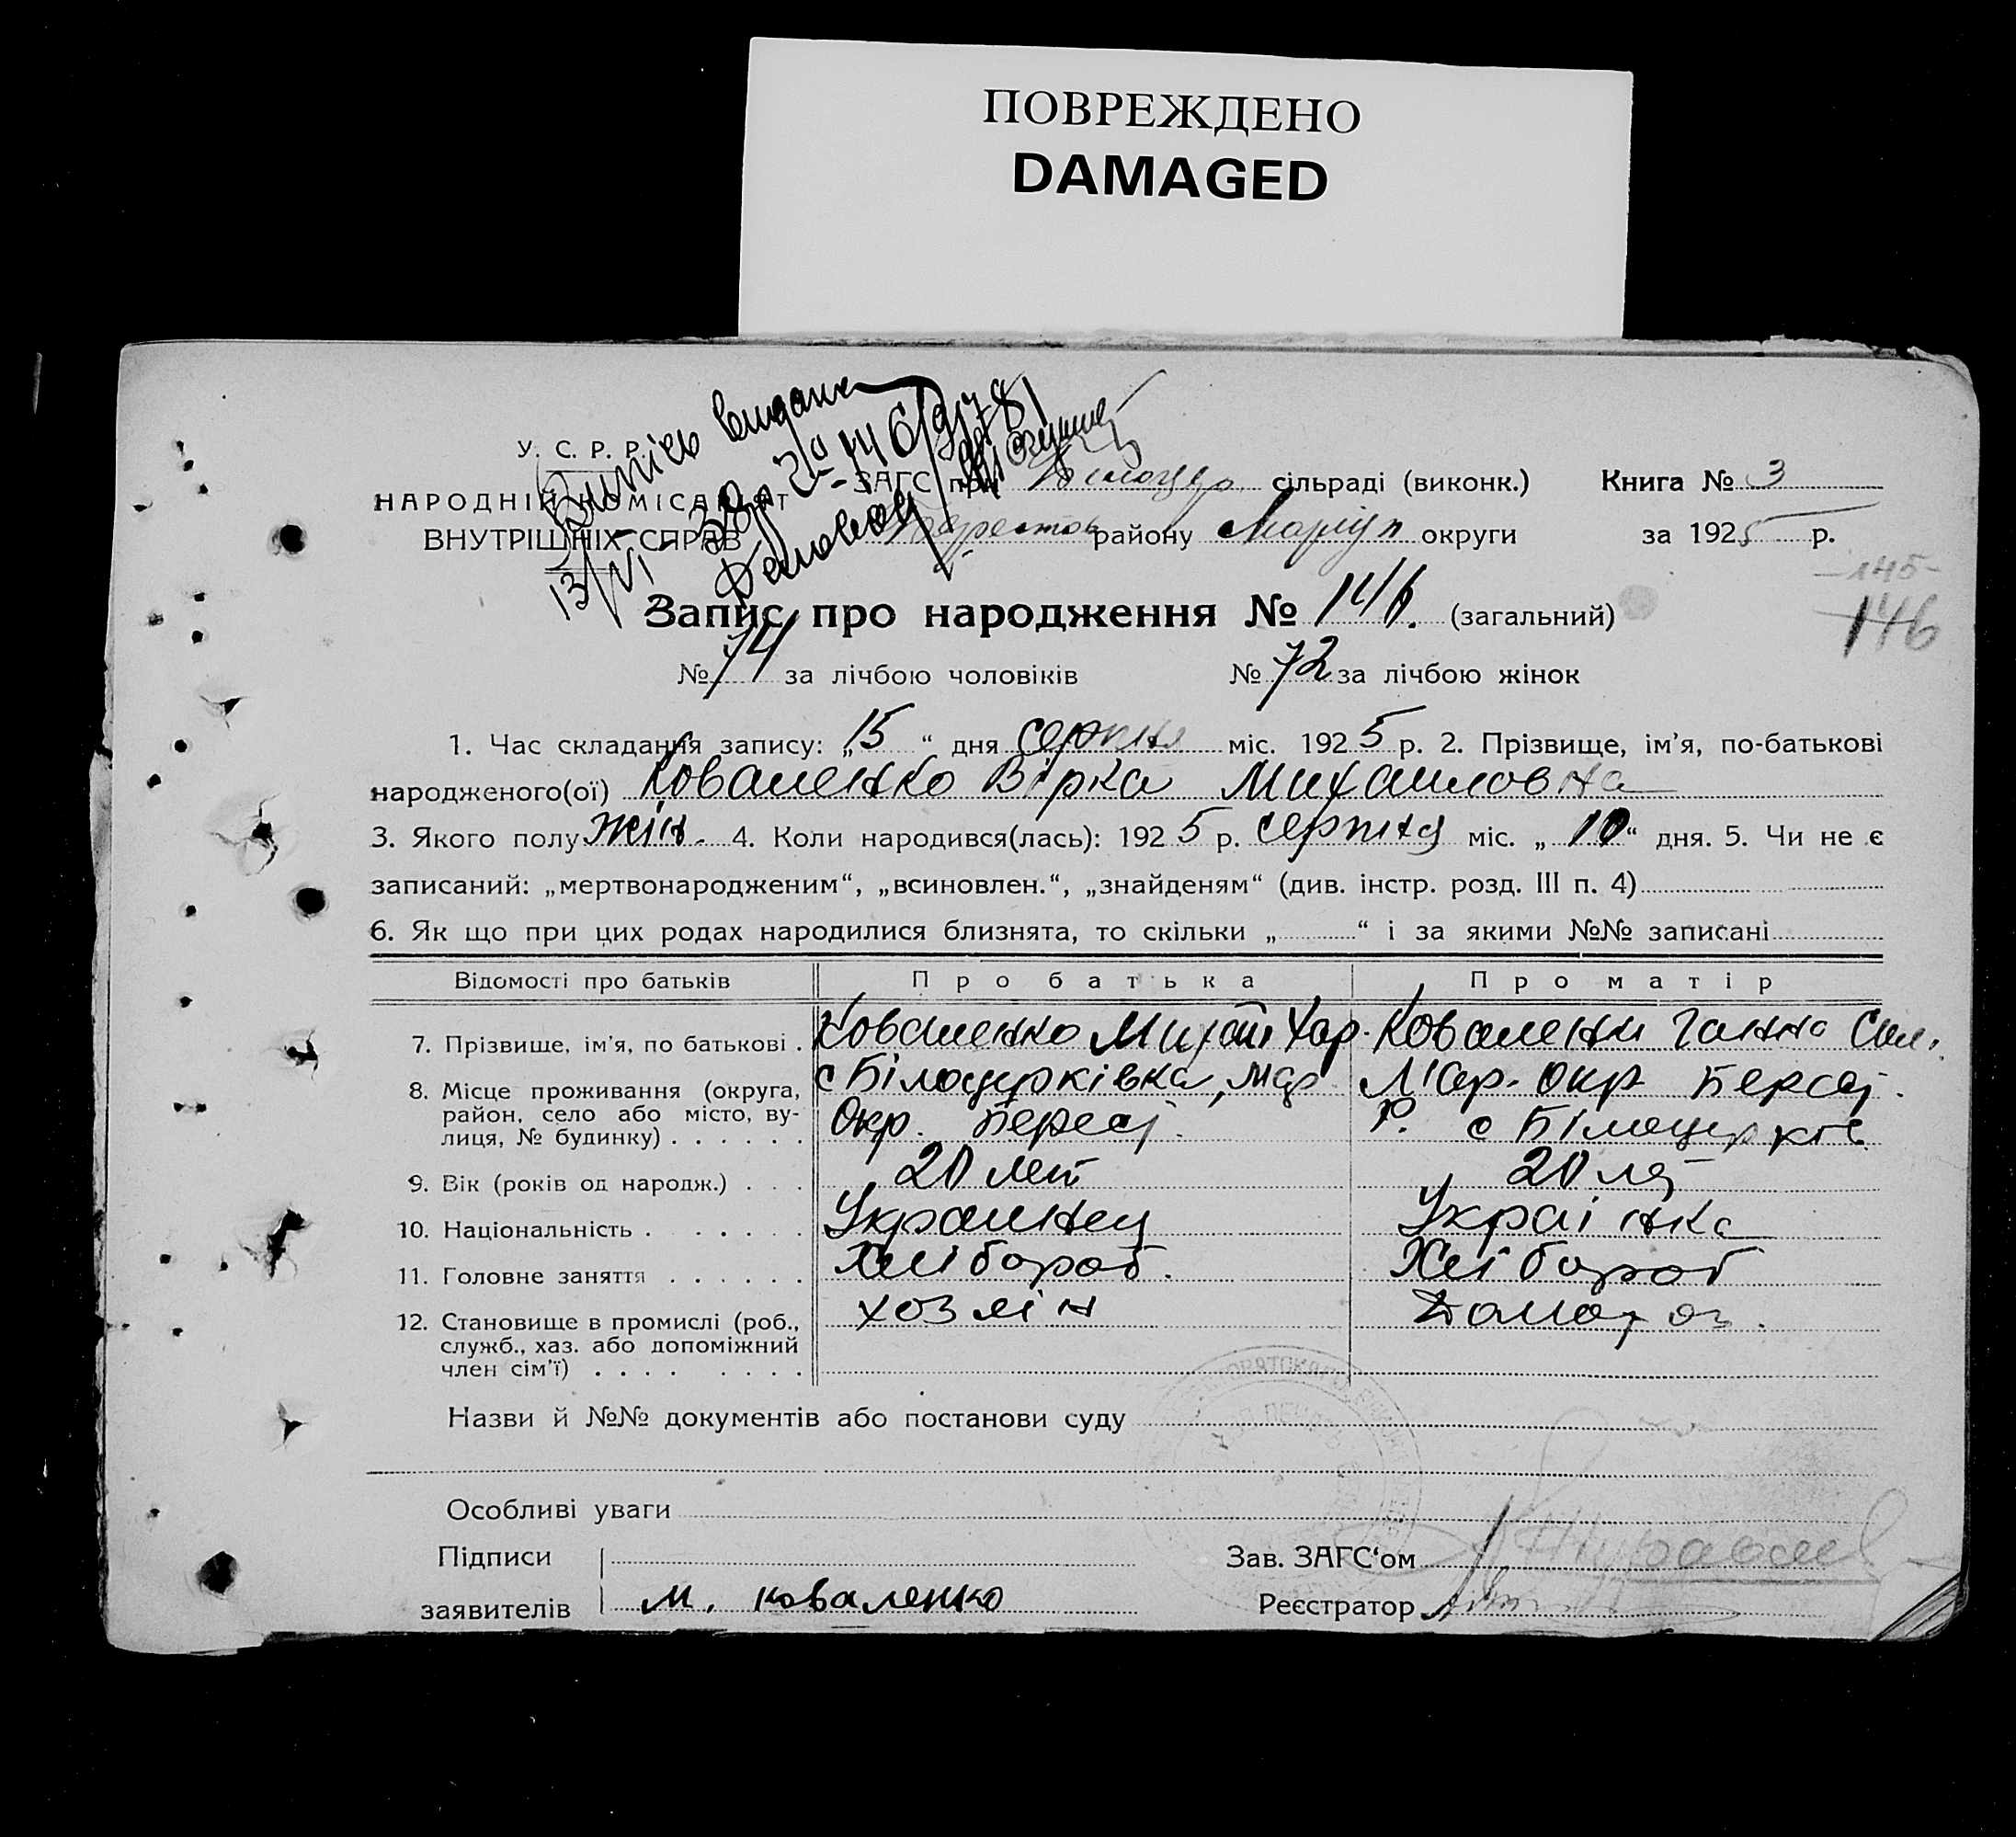 ПОВРЕЖДЕНО
DAMAGED
У. С. Р. Р.
НАРОДНІЙ КОМІСАРІЯТ
ВНУТРІШНІХ СПРАВ
ЗАГС при Білоцер. сільраді (виконк.) Книга № 3
району Маріуп округи за 1925 р.
145
146
Запис про народження № 146. (загальний)
№ 74 за лічбою чоловіків № 72 за лічбою жінок
1. Час складання запису: „15“ дня серпня міс. 1925 р. 2. Прізвище, ім'я, по-батькові
народженого(ої) Коваленко Вірка Михаиловна
3. Якого полу жін. 4. Коли народився(лась): 1925 р. серпня міс. „10“ дня. 5. Чи не є
записаний: „мертвонародженим“, „всиновлен.“, „знайденям“ (див. інстр. розд. III п. 4)
6. Як що при цих родах народилися близнята, то скільки „ “ і за якими №№ записані
Відомості про батьків Про батька Про матір
7. Прізвище, ім'я, по батькові . Коваленко Михаіл Хар. Коваленки Ганна
8. Місце проживання (округа, район, село або місто, вулиця, № будинку) . . . . . .
с Білоцерківка, Мар Окр. Берес.
Мар. Окр Берес. Р. с Білоцерків
9. Вік (років од народж.) . . . 20 лет 20 ле
10. Національність . . . . . . Украинец Українка
11. Головне заняття . . . . . . Хлібороб. Хлібороб
12. Становище в промислі (роб., служб., хаз. або допоміжний член сім'ї) . . . . . . . .
хозяін
Назви й №№ документів або постанови суду
Особливі уваги
Підписи
заявителів М. Коваленко
Зав. ЗАГС'ом
Реєстратор